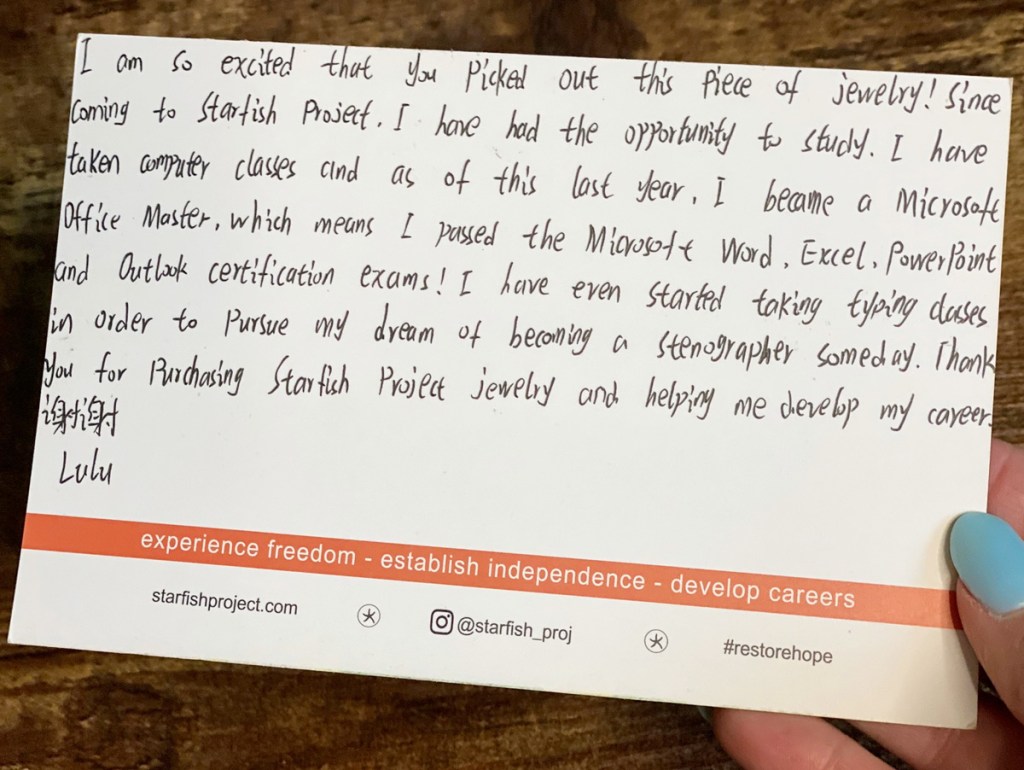 I am so excited that you picked out this piece of jewelry! Since
coming to Starfish Project, I have had the opportunity to study. I have
taken computer classes and as of this last year, I became a Microsoft
Office Master, which means I passed the Microsoft Word, Excel, PowerPoint
and Outlook certification exams! I have even started taking typing classes
in order to pursue my dream of becoming a stenographer someday. Thank
you for purchasing Starfish Project jewelry and helping me develop my career.
谢谢
Lulu
experience freedom - establish independence - develop careers
starfishproject.com @starfish_proj #restorehope